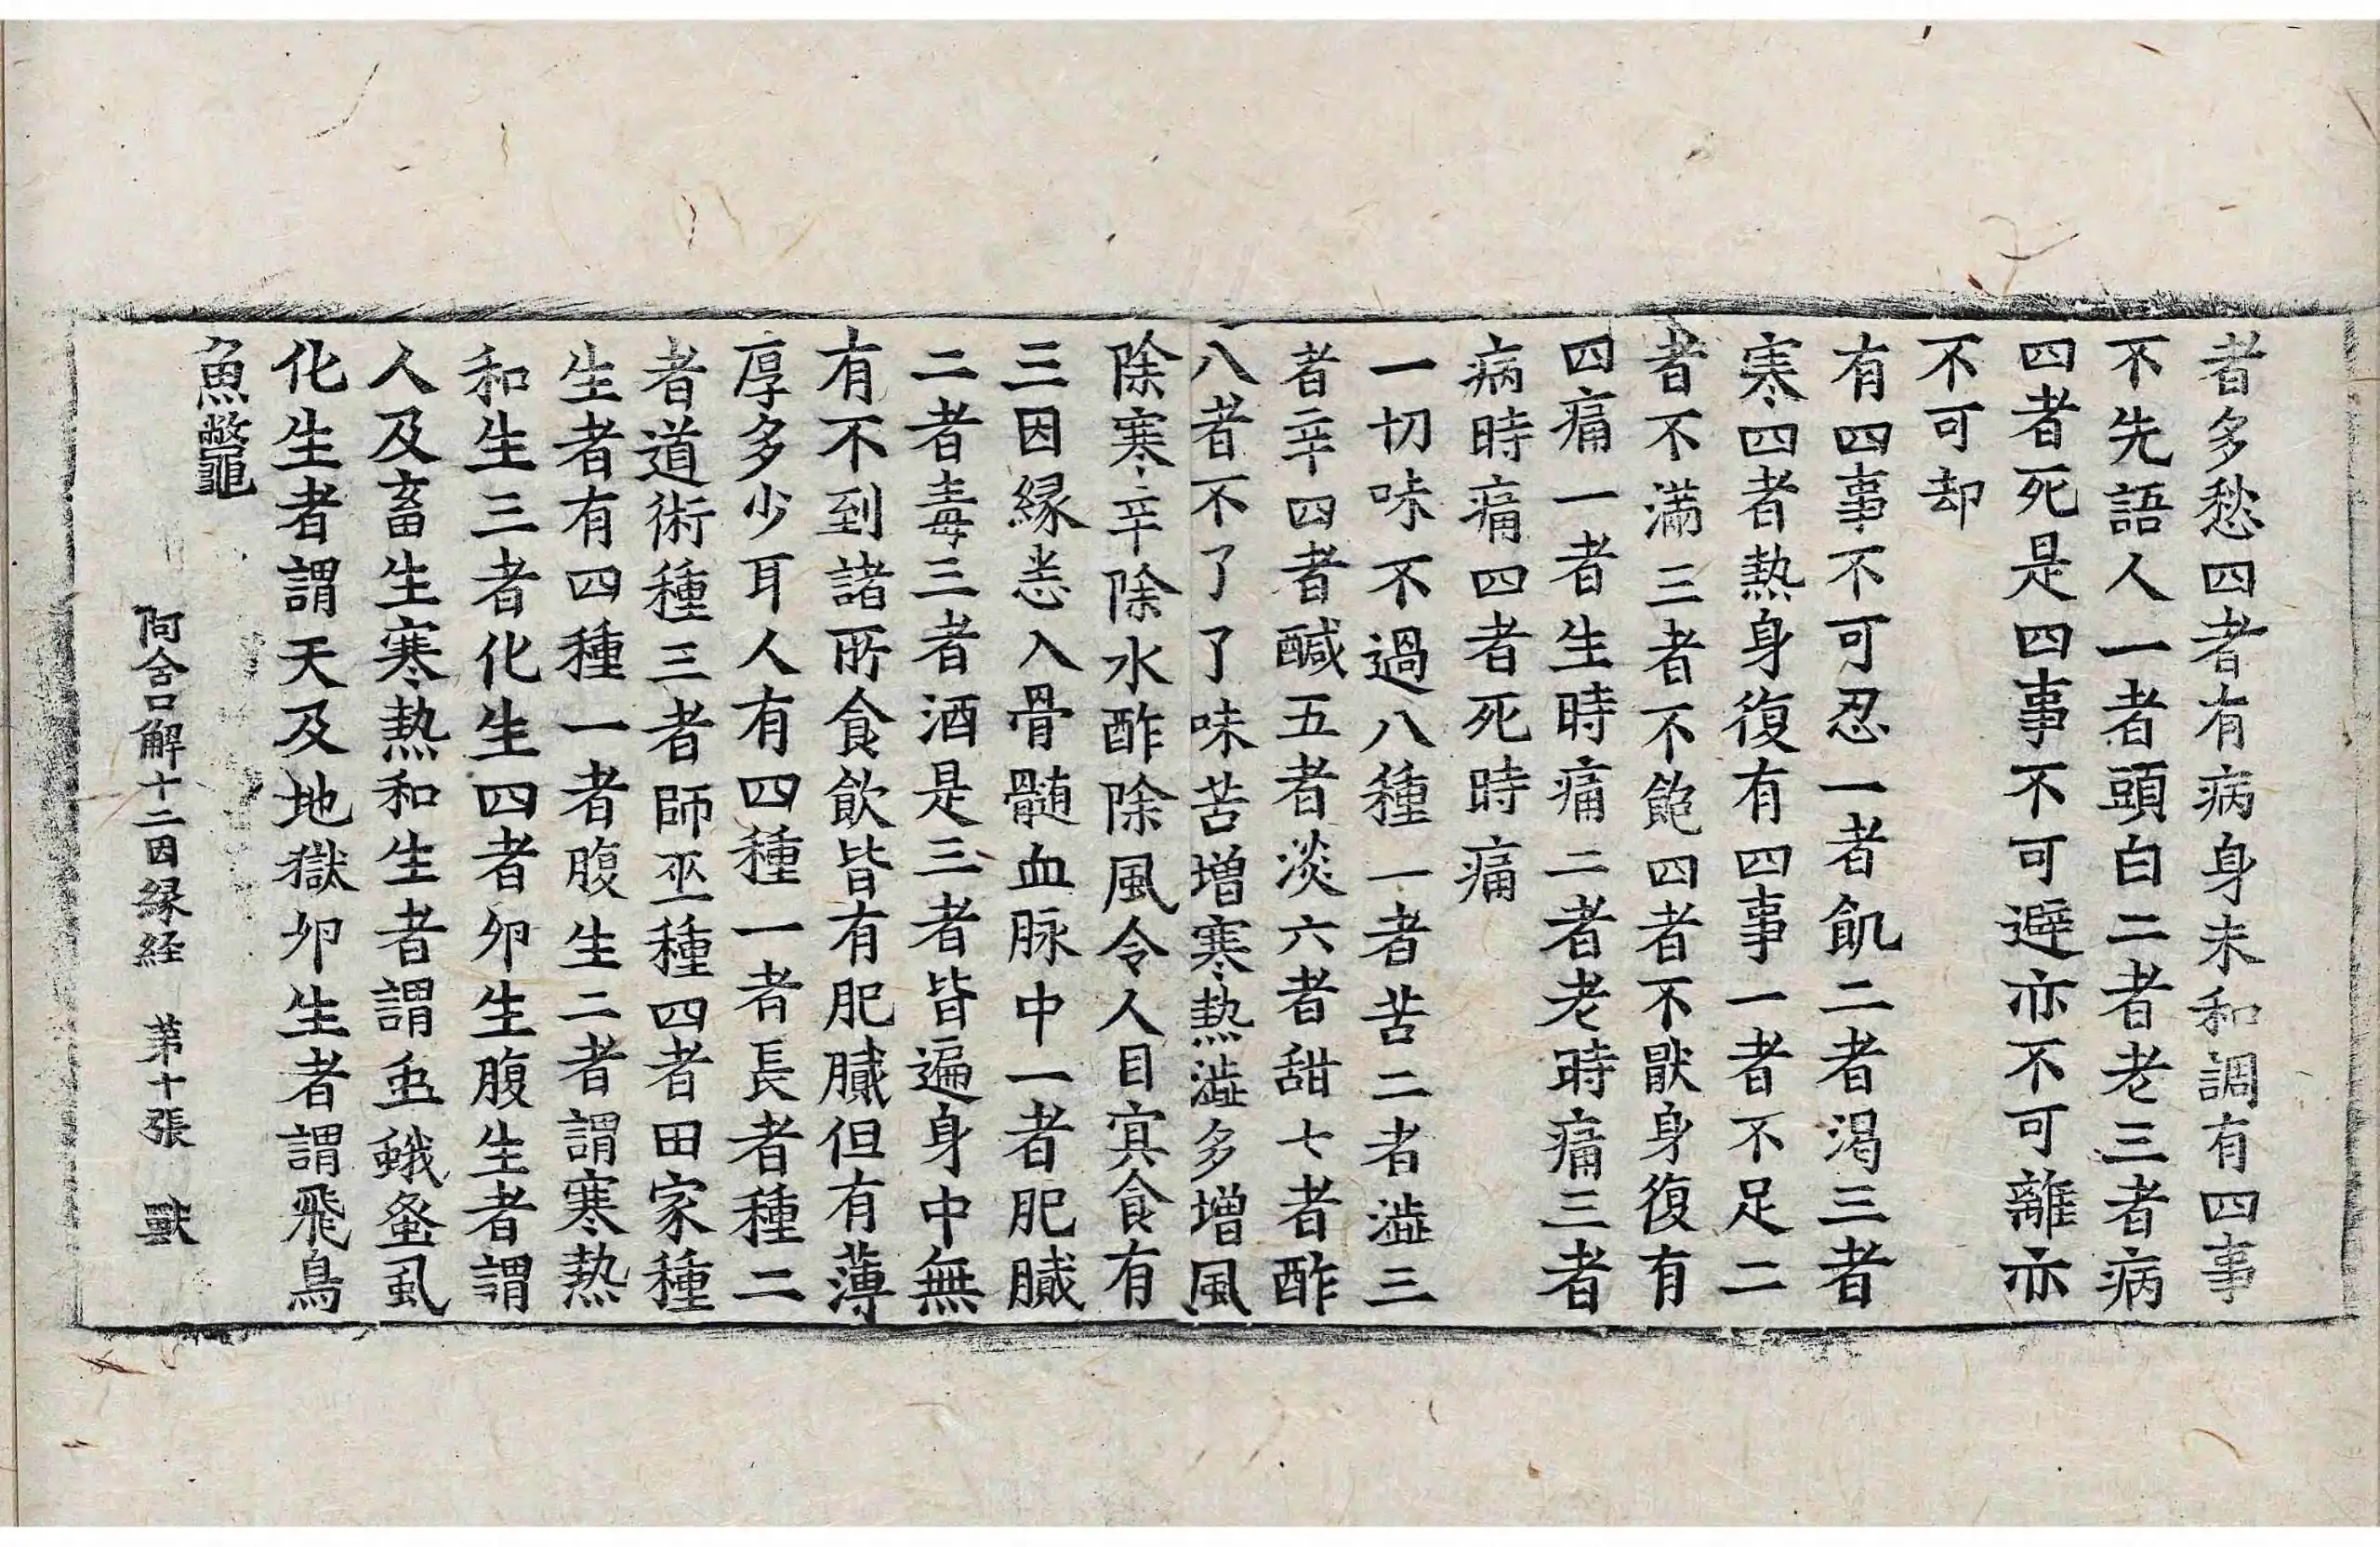 者多愁四者有病身未和調有四事
不先語人一者頭白二者老三者病
四者死是四事不可避亦不可離亦
不可却
有四事不可忍一者飢二者渴三者
寒四者熱身復有四事一者不足二
者不滿三者不飽四者不猒身復有
四痛一者生時痛二者老時痛三者
病時痛四者死時痛
一切味不過八種一者苦二者澁三
者辛四者醎五者淡六者甜七者酢
八者不了了味苦增寒熱澁多增風
除寒辛除水酢除風令人目寘食有
三因緣悉入骨髓血脉中一者肥膩
二者毒三者酒是三者皆遍身中無
有不到諸所食飲皆有肥膩但有薄
厚多少耳人有四種一者長者種二
者道術種三者師巫種四者田家種
生者有四種一者腹生二者謂寒熱
和生三者化生四者卵生腹生者謂
人及畜生寒熱和生者謂虫蛾蚤虱
化生者謂天及地獄卵生者謂飛鳥
魚鼈
阿含口解十二因緣経　苐十張　獸